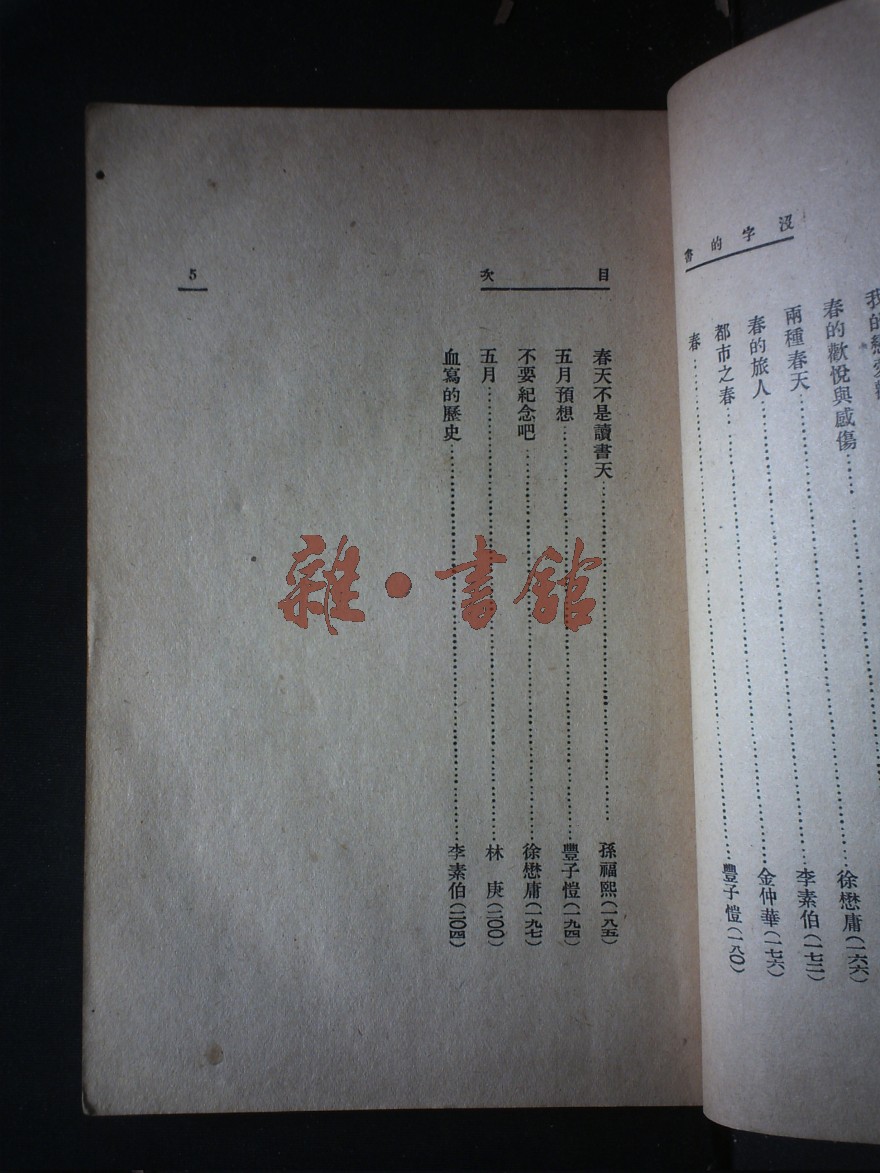 沒字的書
我的戀愛
春的歡悅與感傷……
兩種春天……徐懋庸(一六六)
春的旅人……李素伯(一七二)
都市之春……金仲華(一七六)
春……豐子愷(一八〇)
目次
春天不是讀書天……孫福熙(一八五)
五月預想……豐子愷(一九四)
不要紀念吧……徐懋庸(一九七)
五月……林庚(二〇〇)
血寫的歷史……李素伯(二〇四)
5
雜·書館